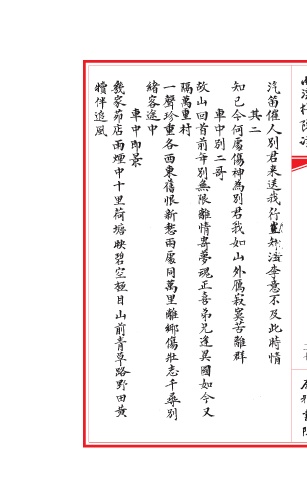 汽笛催人別君來送我行豈知潭李意不及此時情
其二
知己今何處傷神為別君我如山外鴈寂寞苦離群
車中別二哥
故山回首前年別無限離情寄夢魂正喜弟兄逢異國如今又
隔萬重村
一聲珍重各西東舊恨新愁兩處同萬里離鄉傷壯志千桑別
緒客途中
車中即景
幾家茆店兩煙中十里荷塘映碧空極目山前青草路野田黃
犢伴追風